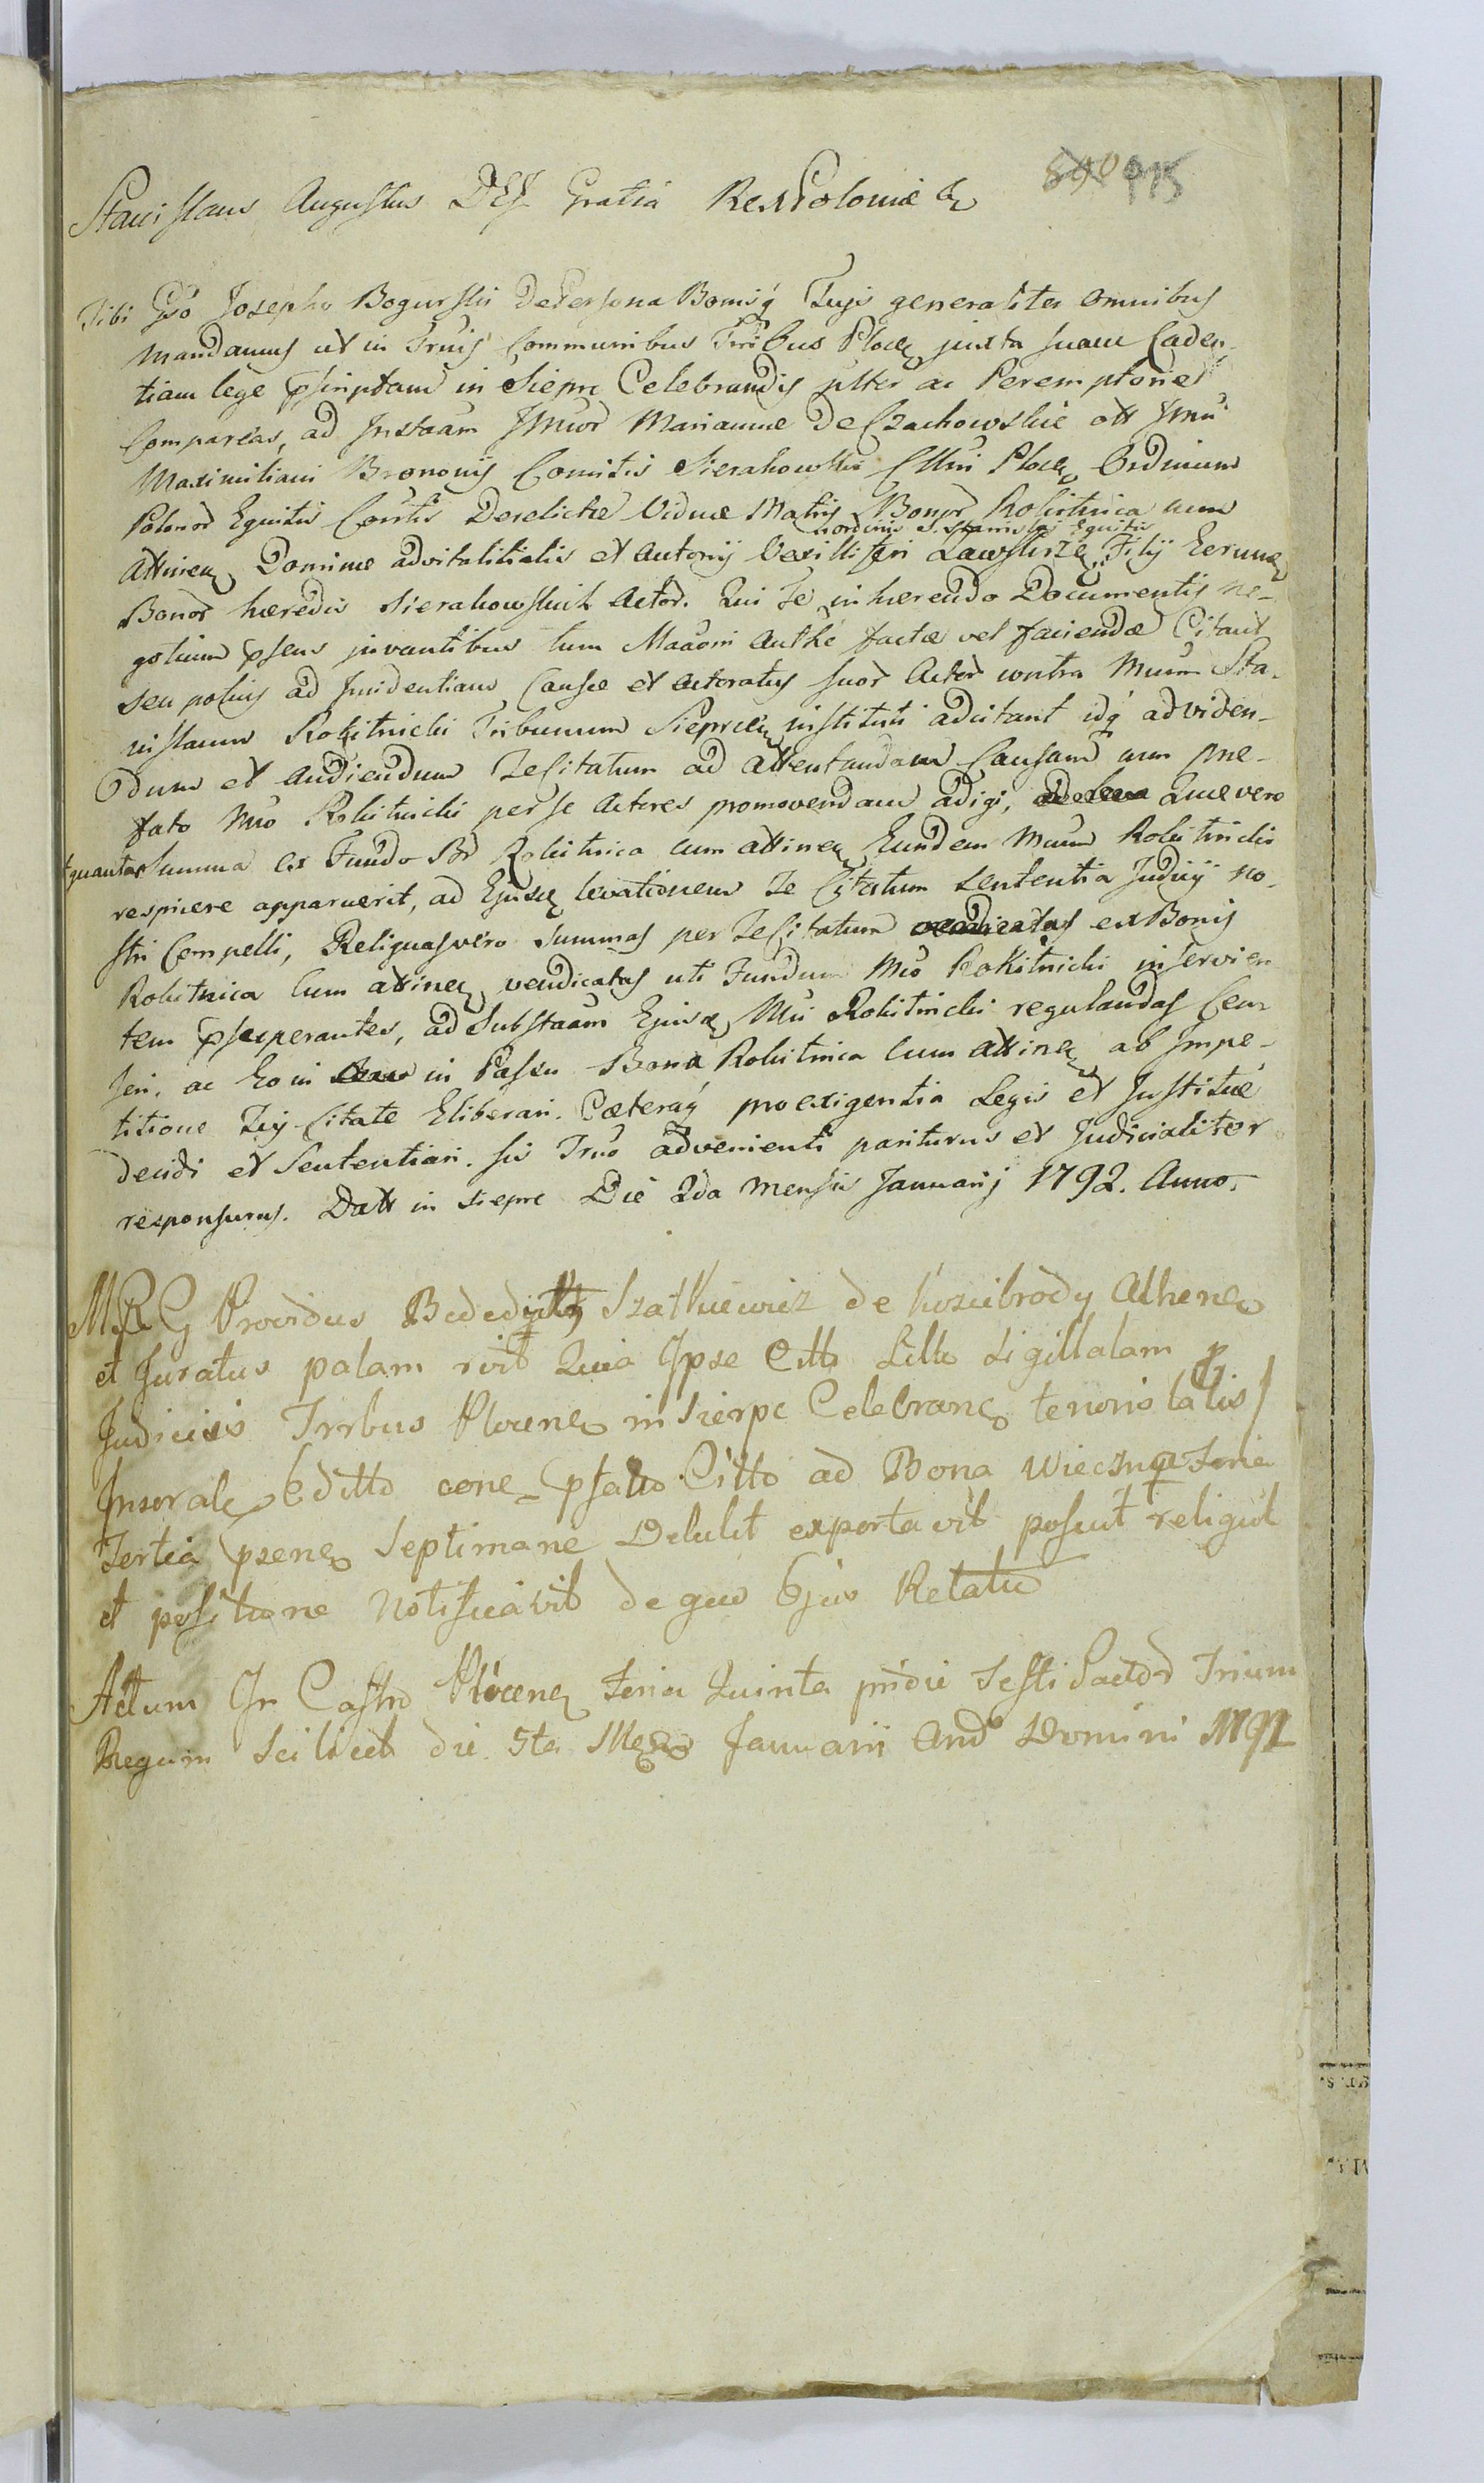 840 915
Stanislaus Augustus DEJ Gratia Rex Poloniæ &
Tibi Gso Josepho Bogurski De Persona Bonisq Tuis generaliter omnibus
Mandamus ut in Truis Communibus Tribus Plocen juxta suam Caden-
tiam lege pscriptam in Sieprc Celebrandis pltter ac Peremptorie
Compareas, ad Instaam Jmuor Mariannæ De Czachowskie olt Jmu
Maximiliani Brononis Comitis Sierakowski Cllni Plocen Ordinum
Polonor Equitis Consortis Derelictæ Viduæ Matris Bonor Rokitnica cum
ordinis S. Stanislai Equitis
Attinen Dominæ advitalitialis et Antonij Vexilliferi Lawskrze, Filij Earund
Bonor hæredis Sierakowskich Actor. Qui Te inhærendo Documentis ne-
gotium psens juvantibus tum Maaoni Authe factæ vel faciendæ Citant
seu potius ad Incidentiam Causæ et Actoratus suor Actor contra Mum Sta-
nislaum Rokitnicki Tribunum Sieprcen instituti adcitant idq ad viden-
dum et audiendum Te Citatum ad attentandam Causam cum præ-
fato Mo Rokitnicki per se Actores promovendam adigi, Quæ vero
quanta Summa ex Fundo Br Rokitnica cum attinen Eundem Mum Rokitnicki
respicere apparuerit, ad Ejusd levationem Te Citatum Sententia Judicij no-
stri Compelli, Reliquas vero Summas per Te Citatum ex Bonis
Rokitnica cum attinen vendicatas uti Fundum Mo Rokitnicki inservien
tem psuperantes, ad Substaam Ejusd Mi Rokitnicki regulandas Cen
seri, ac Eo in in Passu Bona Rokitnica cum attinen ab Impe-
titione Tij Citate Eliberari. Cæteraq pro exigentia Legis et Justitiæ
decidi et Sententiari. Sis Truo advenienti pariturus et Judicialiter
responsurus. Datt in Sieprc Die 2da Mensis Januarij 1792. Anno.
MRG Providus Szatkiewicz de Koziebrody Athenen
et Juratus palam rvit Quia Ipse Citto Litto Sigillatam pr
Judiciis Trrbus Plocene in Sierpc Celebranc tenoris talis
Insorale Editto cone psatto Citto ad Bona Wiecznia Feria
Tertia psene Septimane Detulit exportavit posuit reliquit
et positione Notificavit de quo Ejus Relatio
Actum In Castro Plocene Feria Quinta pridie Festi Sactor Trium
Regum Scilicet die 5ta Januarii Anō Domini